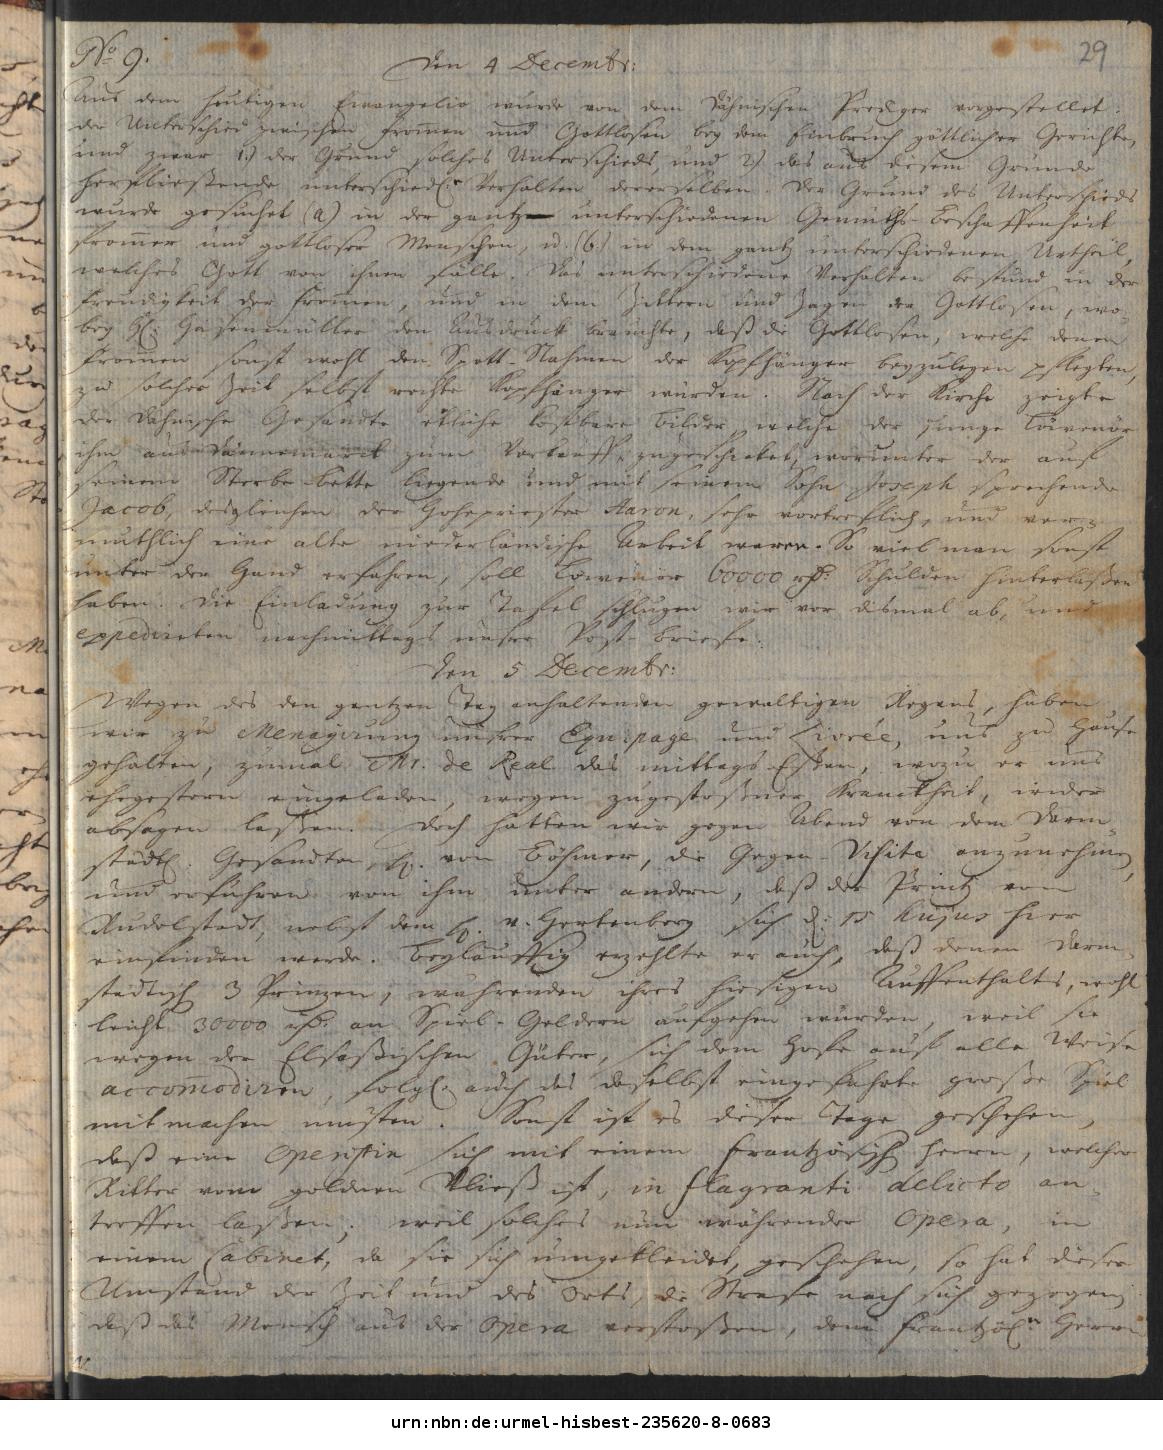 No 9.
29
Den 4 Decembr:
Aus dem heutigen Evangelio wurde von dem Dähnischen Prediger vorgestellet:
der Unterschied zwischen Frommen und Gottlosen bey dem Einbruch göttlicher Gerichte,
und zwar 1.) der Grund solches Unterschieds, und 2.) das aus diesem Grunde
herfließende unterschiedl. Verhalten dererselben. Der Grund des Unterschieds
wurde gesuchet (a) in der gantz unterschiedenen Gemüths-Beschaffenheit
frommer und gottloser Menschen, u. (b.) in dem gantz unterschiedenen Urtheil,
welches Gott von ihnen fälle. Das unterschiedene Verhalten bestund in der
Freudigkeit der Frommen, und in dem Zittern und Zagen der Gottlosen, wo-
bey H. Hasenmüller den Ausdruck brauchte, daß die Gottlosen, welche denen
Frommen sonst wohl den Spott-Nahmen der Kopfhänger beyzulegen pflegten,
zu solcher Zeit selbst rechte Kopfhänger würden. Nach der Kirche zeigte
der Dähnische Gesandte etliche kostbare Bilder, welche der junge Löwenör
ihm aus Dännemarck zum Verkauff zugeschicket, worunter der auf
seinem Sterbe-Bette liegende und mit seinem Sohn Joseph sprechende
Jacob, desgleichen der Hohepriester Aaron, sehr vortreflich, und ver-
muthlich eine alte niederländische Arbeit waren. So viel man sonst
unter der Hand erfahren, soll Löwenör 60000 rthl. Schulden hinterlaßen
haben. Die Einladung zur Tafel schlugen wir vor dismal ab, und
expedirten nachmittags unsre Post-Briefe.
Den 5 Decembr:
Wegen des den gantzen Tag anhaltenden gewaltigen Regens, haben
wir zu Menagirung unsrer Equipage und Livrée, uns zu Hause
gehalten, zumal Mr. de Real das mittags-Eßen, wozu er uns
ehegestern eingeladen, wegen zugestoßner Kranckheit, wieder
absagen laßen. Doch hatten wir gegen Abend von dem Darm-
städtl. Gesandten, H. von Böhmer, die Gegen-Visite anzunehmen,
und erfuhren von ihm unter andern, daß der Printz von
Rudelstadt, nebst dem H. v. Hertenberg sich d. 15 hujus hier
einfinden werde. Beyläuffig erzehlte er auch, daß denen Darm-
städtisch 3 Prinzen, währenden ihres hiesigen Auffenthalts, wohl
leicht 30000 rthl. an Spiel-Geldern aufgehen würden, weil sie
wegen der Elsaßischen Güter, sich dem Hofe auf alle Weise
accommodiren, folgl. auch das daselbst eingeführte große Spiel
mit machen müsten. Sonst ist es dieser Tage geschehen,
daß eine Operistin sich mit einem Frantzösisch Herrn, welcher
Ritter vom goldnen Vließ ist, in flagranti delicto an-
treffen laßen; weil solches nun währender Opera, in
einem Cabinet, da sie sich umgekleidet, geschehen, so hat dieser
Umstand der Zeit und des Orts, die Strafe nach sich gezogen,
daß das Mensch aus der Opera verstoßen, dem Frantzösl. Herrn
urn:nbn:de:urmel-hisbest-235620-8-0683